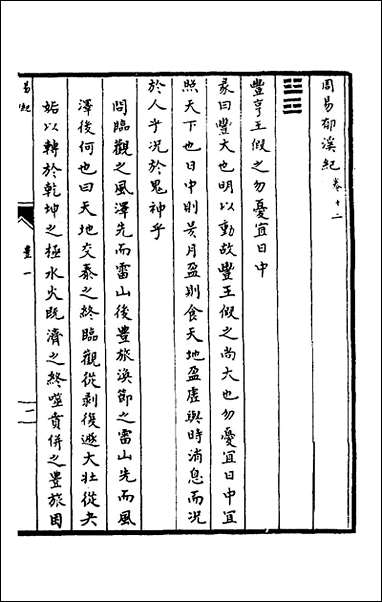 周易郁溪紀 卷十二
䷶
豐亨王假之勿憂宜日中
彖曰豐大也明以動故豐王假之尚大也勿憂宜日中宜
照天下也日中則昃月盈則食天地盈虛與時消息而況
於人乎況於鬼神乎
問臨觀之風澤先而雷山後豐旅渙節之雷山先而風
澤後何也曰天地交泰之終臨觀從剥復遯大壯從夬
姤以轉於乾坤之極水火既濟之終噬賁併之豐旅困
易紀
豐一
一